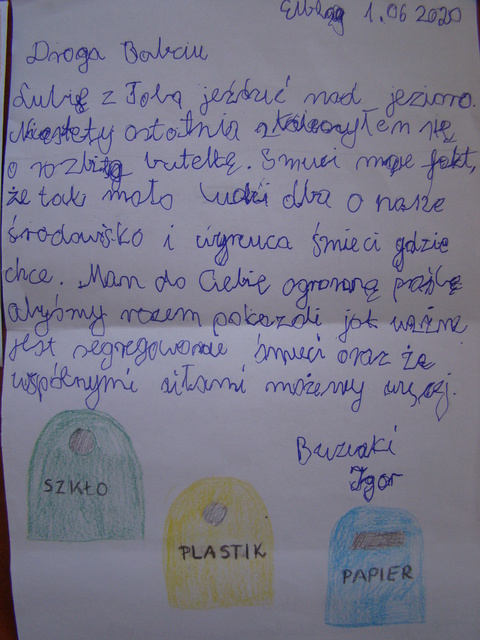 Elbląg 1.06 2020
Droga Babciu
Lubię z Tobą jeździć nad jezioro.
Niestety ostatnio skaleczyłem się
o rozbitą butelkę. Smuci mnie fakt,
że tak mało ludzi dba o nasze
środowisko i wyrzuca śmieci gdzie
chce. Mam do Ciebię ogromną prośbę
abyśmy razem pokazali jak ważne
jest segregowanie śmieci oraz że
wspólnymi siłami możemy więcej.
Buziaki
Igor
SZKŁO
PLASTIK
PAPIER